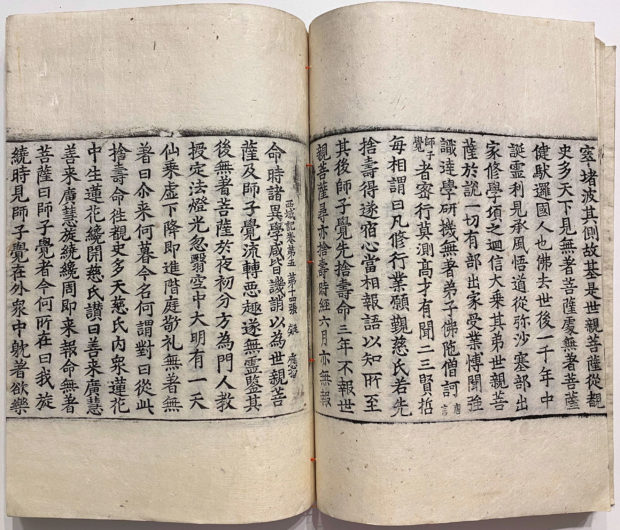 窣堵波其側故基是世親菩薩從覩
史多天下見無著菩薩處無著菩薩
健馱邏國人也佛去世後一千年中
誕靈利見承風悟道從弥沙塞部出
家修學頃之迴信大乘其弟世親菩
薩於說一切有部出家受業博聞強
識達學研機無著弟子佛陁僧訶唐言
師子覺者密行莫測高才有聞二三賢哲
每相謂曰凡修行業願覲慈氏若先
捨壽得遂宿心當相報語以知所至
其後師子覺先捨壽命三年不報世
親菩薩尋亦捨壽時經六月亦無報
西域記卷第五 第十四張
命時諸異學咸皆譏誚以為世親菩
薩及師子覺流轉惡趣遂無靈鑒其
後無著菩薩於夜初分方為門人教
授定法燈光忽翳空中大明有一天
仙乘虛下降即進階庭敬礼無著無
著曰尒来何暮今名何謂對曰從此
捨壽命往覩史多天慈氏內衆蓮花
中生蓮花纔開慈氏讚曰善来廣慧
善来廣慧旋繞纔周即来報命無著
菩薩曰師子覺者今何所在曰我旋
繞時見師子覺在外衆中躭著欲樂